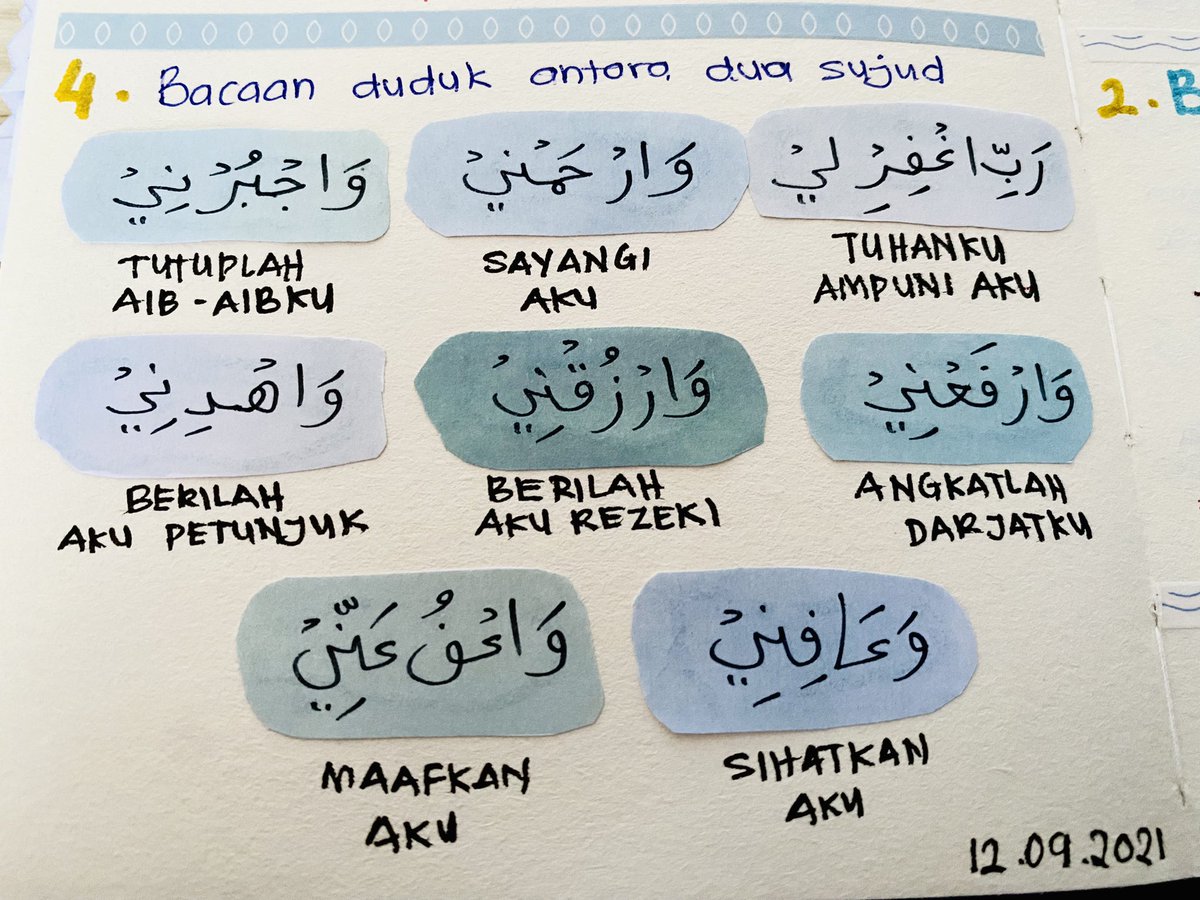 4. Bacaan duduk antara dua sujud
رَبِّ اغْفِرْ لِيْ
TUHANKU
AMPUNI AKU
وَارْحَمْنِيْ
SAYANGI
AKU
وَاجْبُرْنِيْ
TUTUPLAH
AIB-AIBKU
وَارْفَعْنِيْ
ANGKATLAH
DARJATKU
وَارْزُقْنِيْ
BERILAH
AKU REZEKI
وَاهْدِنِيْ
BERILAH
AKU PETUNJUK
وَعَافِنِيْ
SIHATKAN
AKU
وَاعْفُ عَنِّيْ
MAAFKAN
AKU
12.09.2021
2. B